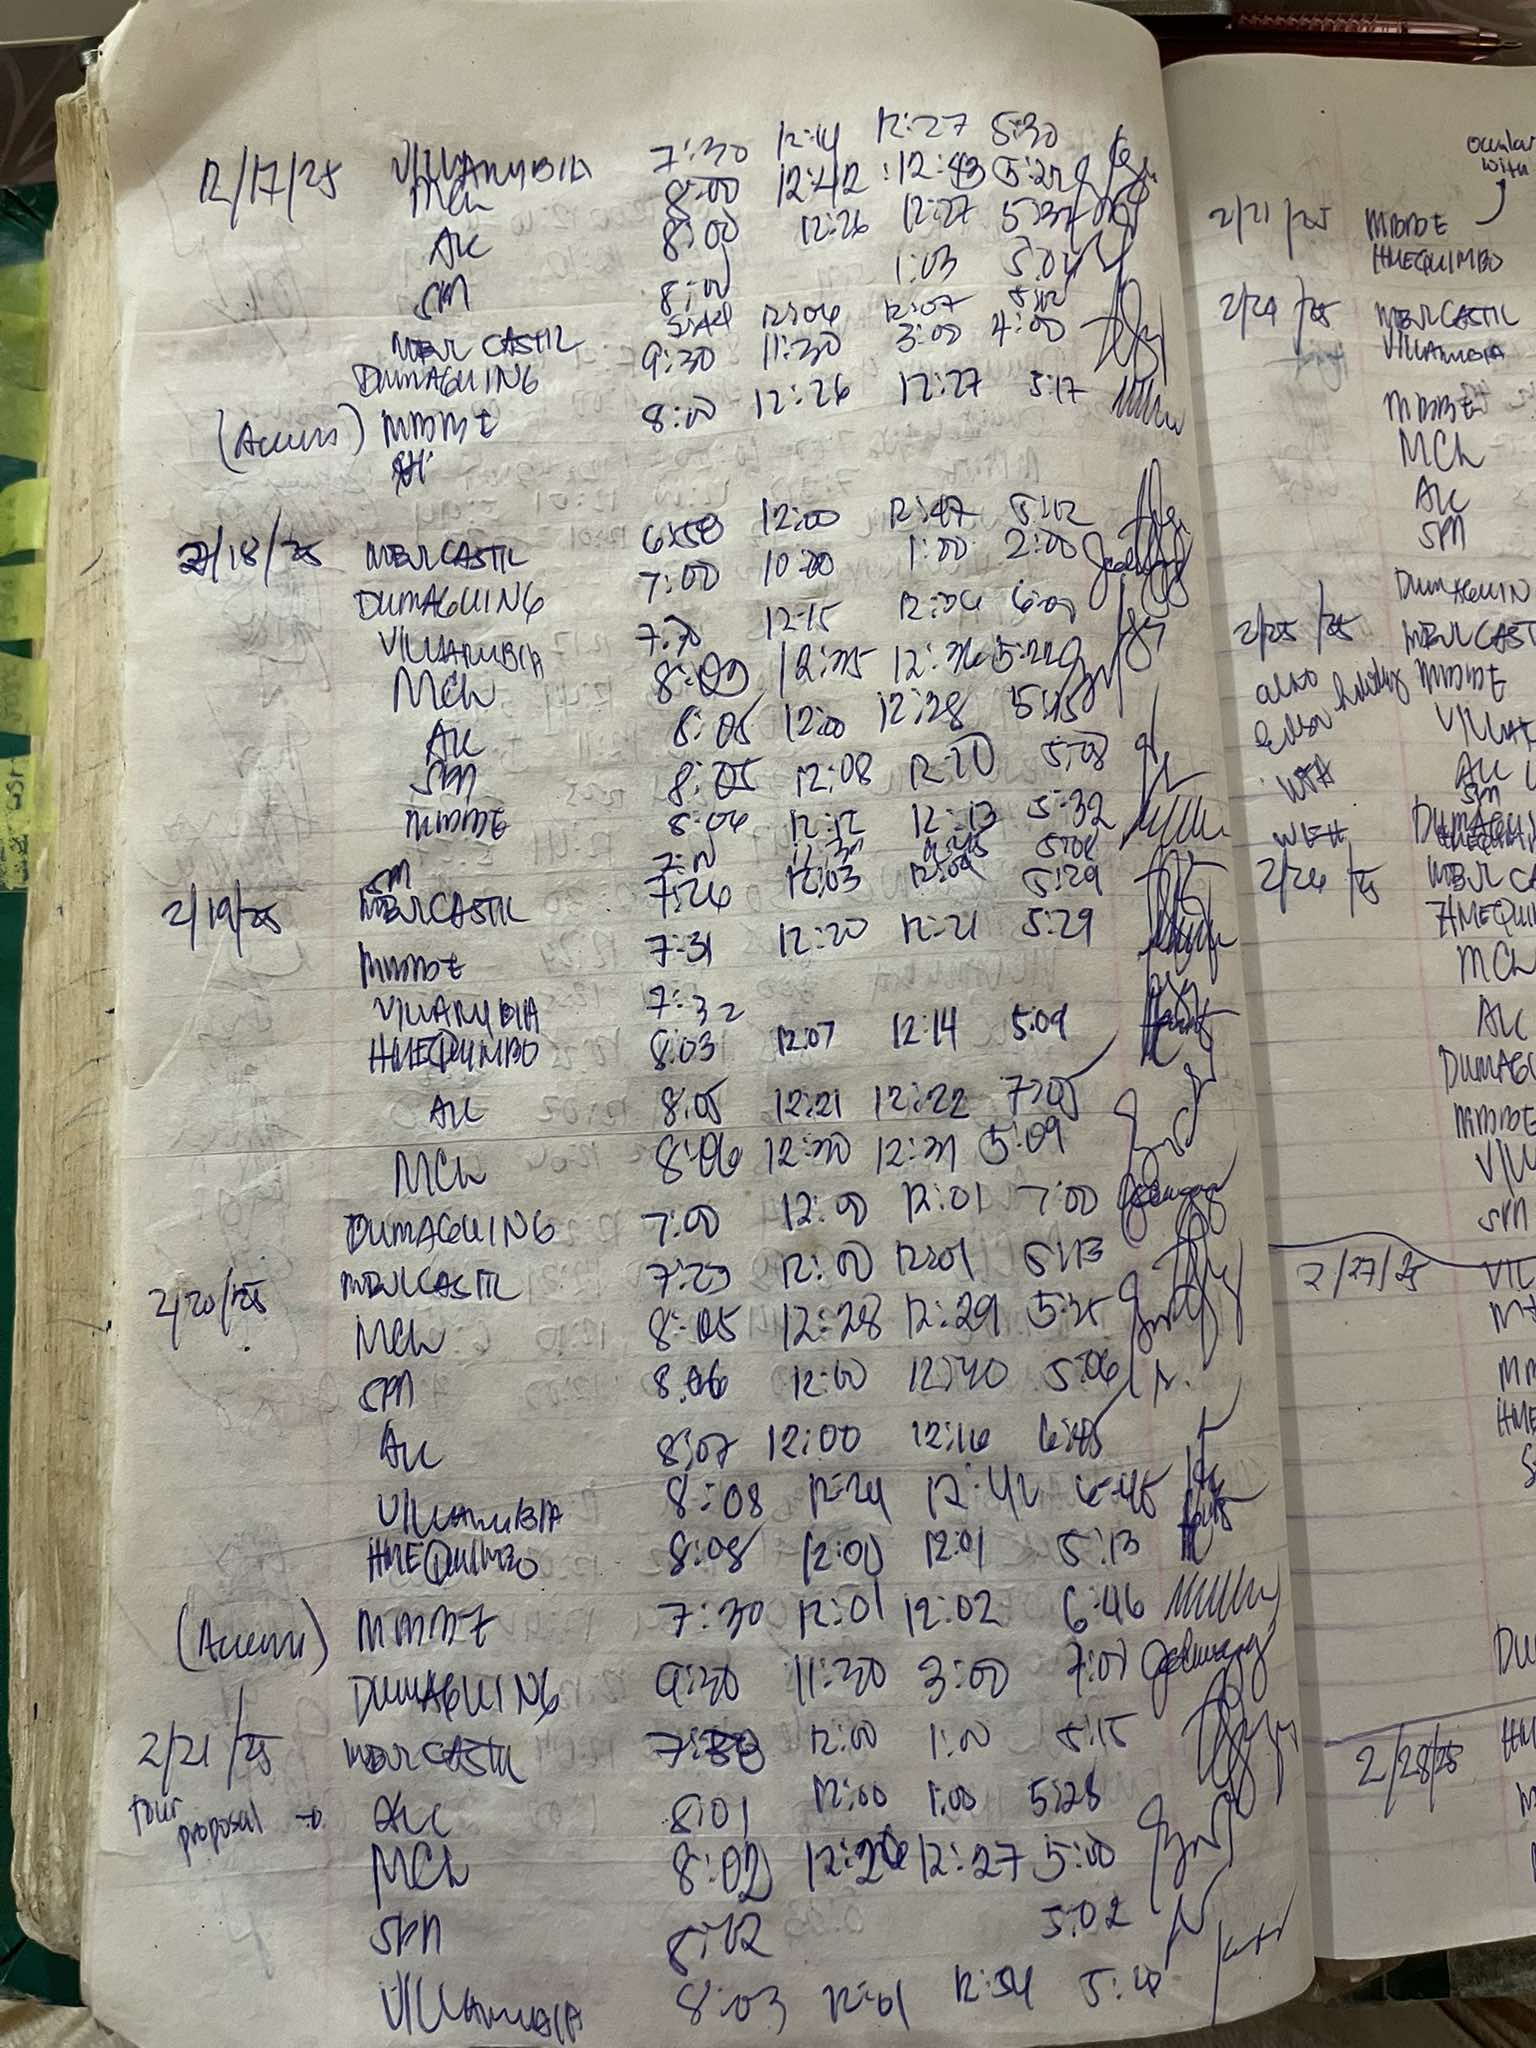 12/17/25 VILLARUBIA 7:30 12:14 12:27 5:30
MCL 8:00 12:42 12:43 5:22
ALC 8:00 12:26 12:27 5:32
SPM 8:00 1:03 5:04
MBJRCASTIL 12:06 12:07 5:12
DUMAGUING 9:30 11:30 3:00 4:00
(Access) MMDDE 8:00 12:26 12:27 5:17
2/18/25 MBJRCASTIL 6:58 12:00 12:47 5:12
DUMAGUING 7:00 10:00 1:00 2:00
VILLARUBIA 7:30 12:15 6:00
MCL 8:03 12:35 12:36 5:22
ALC 8:05 12:00 12:28 5:45
SPM 8:05 12:08 12:20 5:08
MMDDE 8:06 12:12 12:13 5:32
SPM
2/19/25 MBJRCASTIL 7:26 12:03 12:04 5:29
MMDDE 7:31 12:20 12:21 5:29
VILLARUBIA 7:32
HMEQUIMBO 8:03 12:07 12:14 5:09
ALC 8:05 12:21 12:22 7:05
MCL 8:06 12:30 12:31 5:09
DUMAGUING 7:00 12:00 12:01 7:00
2/20/25 MBJRCASTIL 7:29 12:00 12:01 5:13
MCL 8:05 12:28 12:29 5:35
SPM 8:06 12:00 12:40 5:06
ALC 8:07 12:00 12:16 6:45
VILLARUBIA 8:08 12:24 12:42 6:45
HMEQUIMBO 8:08 12:00 12:01 5:13
(Access) MMDDE 7:30 12:01 12:02 6:46
DUMAGUING 9:30 11:30 3:00 7:00
2/21/25 MBJRCASTIL 12:00 1:00 5:15
tour proposal → ALC 8:01 12:00 1:00 5:28
MCL 8:02 12:26 12:27 5:00
SPM 8:02 5:02
VILLARUBIA 8:03 12:01 12:54
ocular with
2/21/25 MMDDE
HMEQUIMBO
2/24/25 MBJRCASTIL
VILLARUBIA
MMDDE
MCL
ALC
SPM
DUMAGUIN
2/25/25 MBJRCAST
MMDDE
VILLAR
WFH ALC
SPM
WFH DUMAGUI
2/26/25 MBJRCA
HMEQUI
MCL
ALC
DUMAGU
MMDDE
VILL
SPM
2/27/25 VIL
M
MM
HME
S
DU
2/28/25 HM